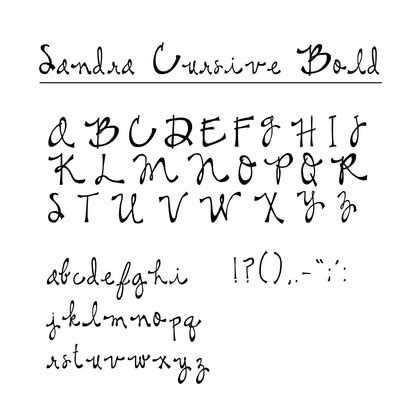 Sandra Cursive Bold
A B C D E F G H I J
K L M N O P Q R
S T U V W X Y Z
abcdefghi
!?(),.-“;’:
jklmnopq
rstuvwxyz